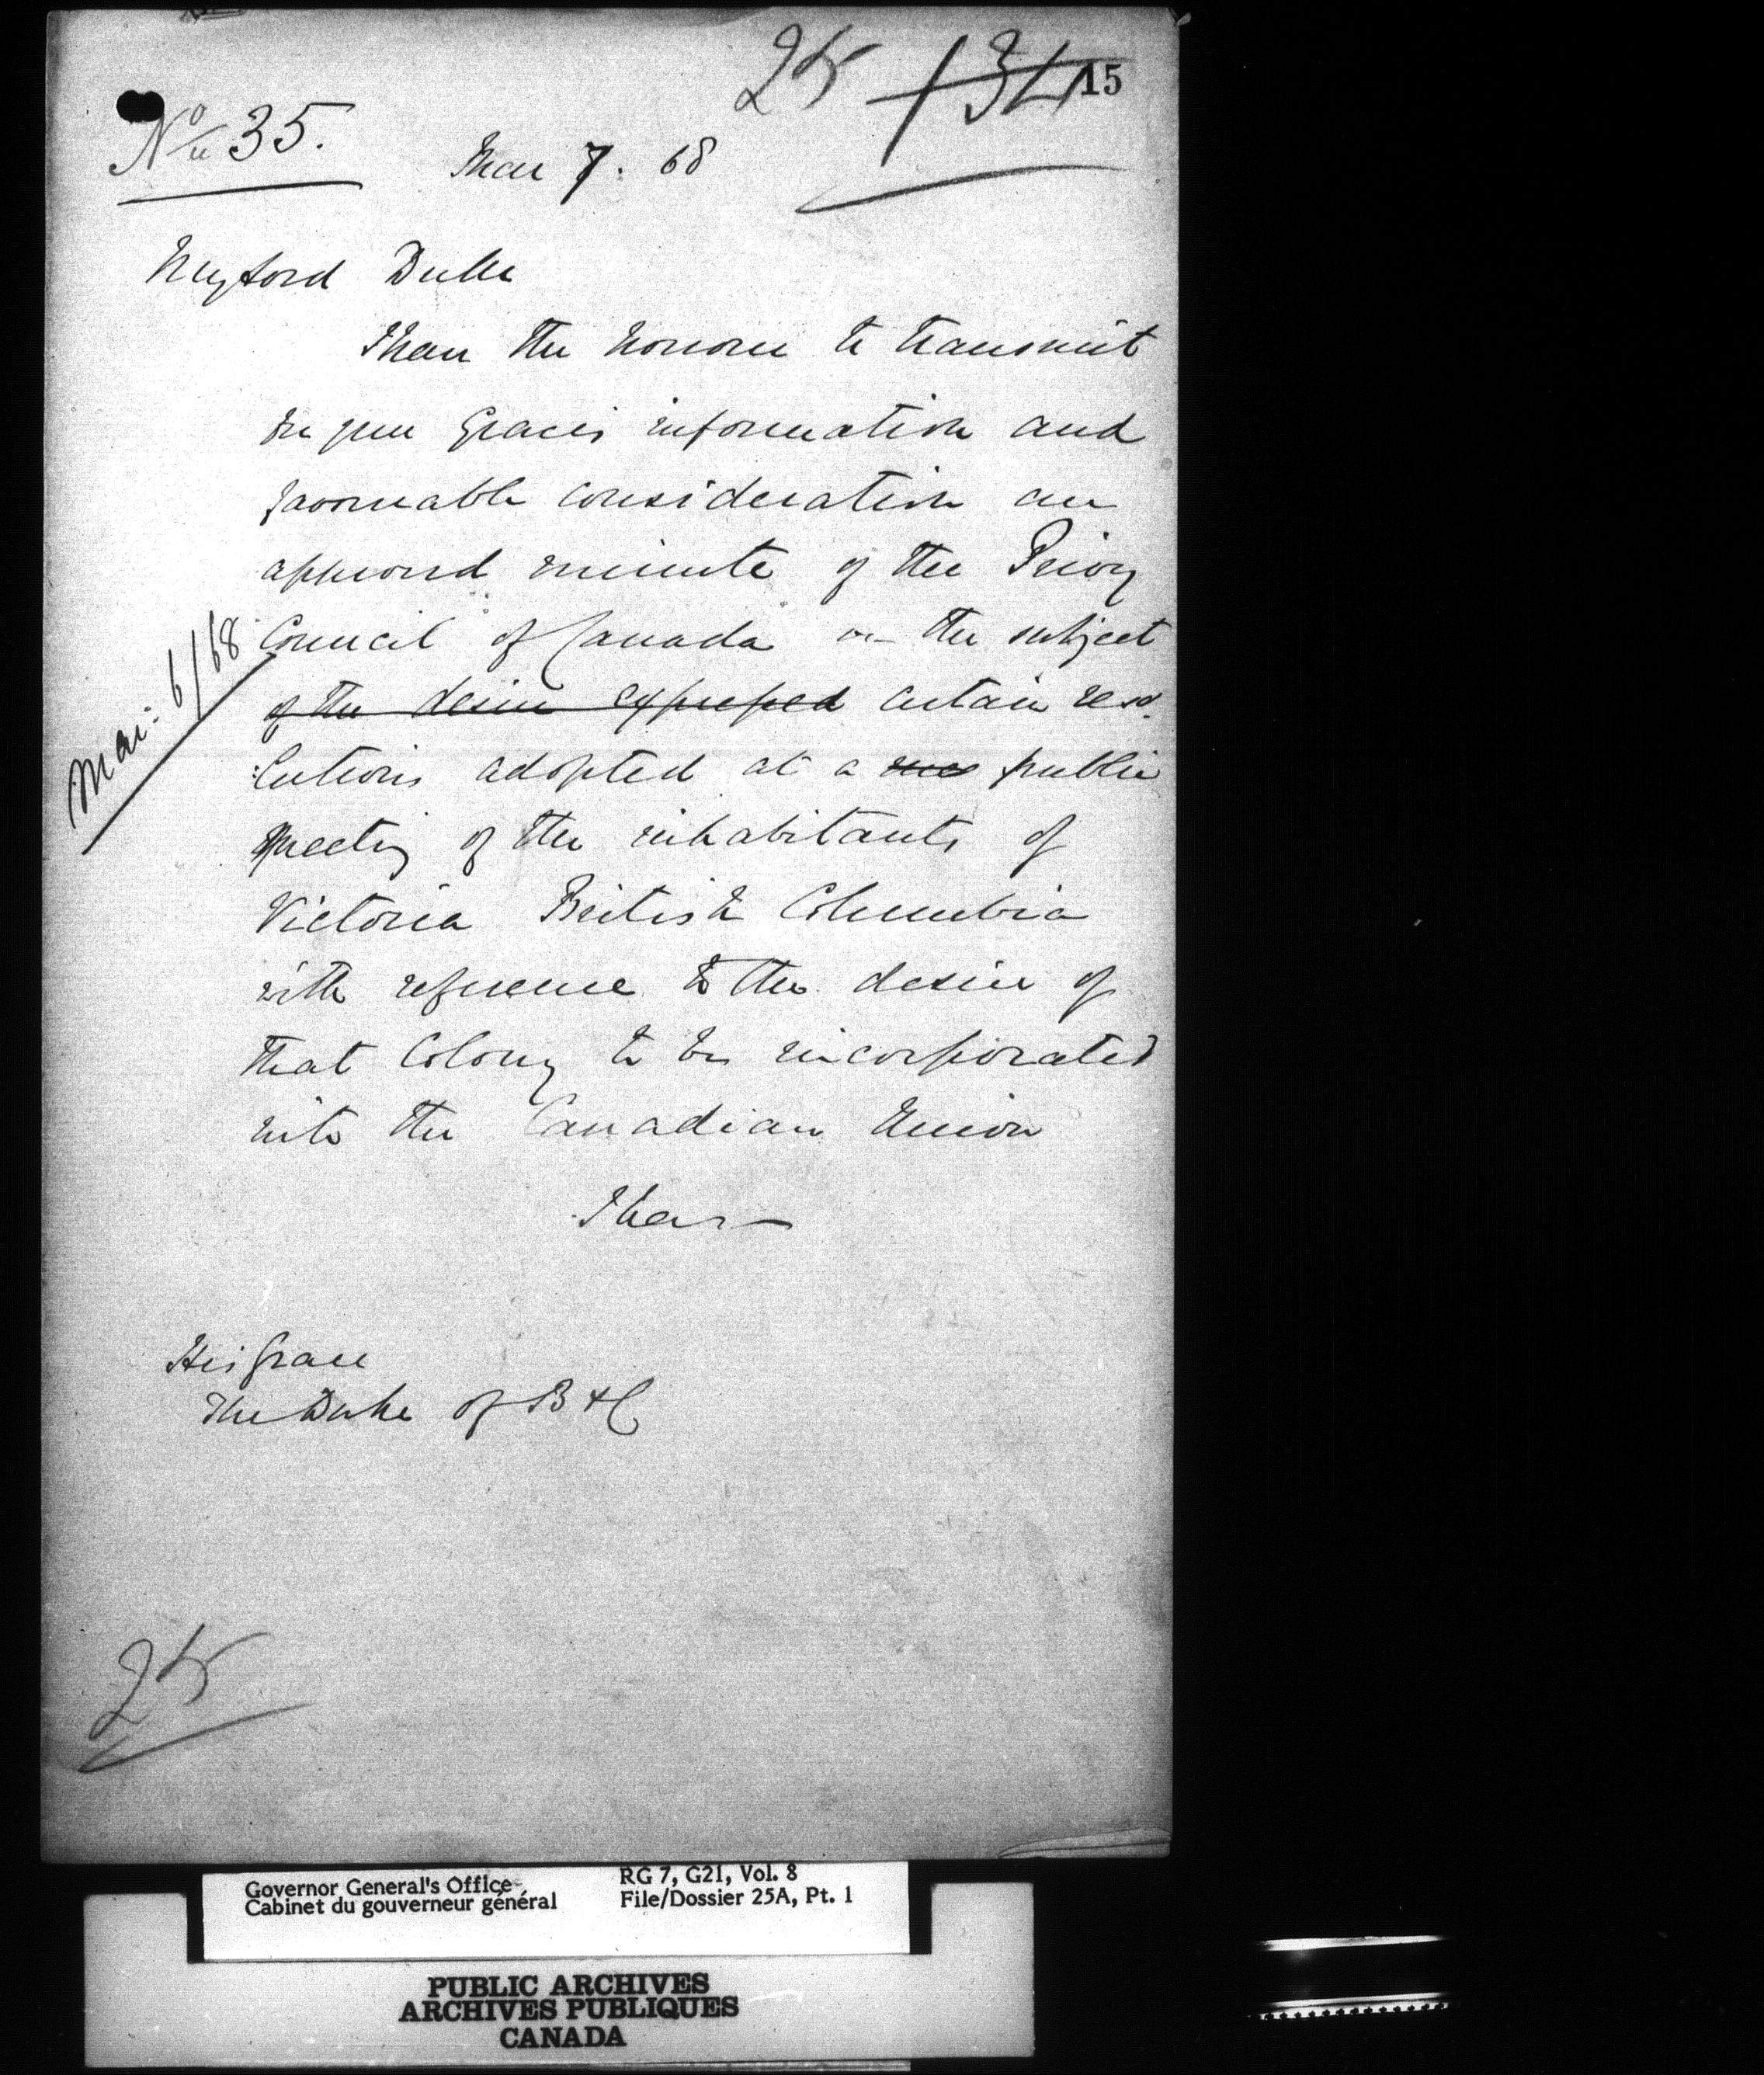 25 134 15
No 35.
Mar 7. 68
My Lord Duke
I have the honour to transmit
for your Grace's information and
favourable consideration an
approved minute of the Privy
Council of Canada on the subject
Mar: 6/68
of the desire expressed certain reso-
lutions adopted at a public
meeting of the inhabitants of
Victoria British Columbia
with reference to the desire of
that Colony to be incorporated
into the Canadian Union
I have
His Grace
The Duke of B & C
25
Governor General's Office RG 7, G21, Vol. 8
Cabinet du gouverneur général File/Dossier 25A, Pt. 1
PUBLIC ARCHIVES
ARCHIVES PUBLIQUES
CANADA